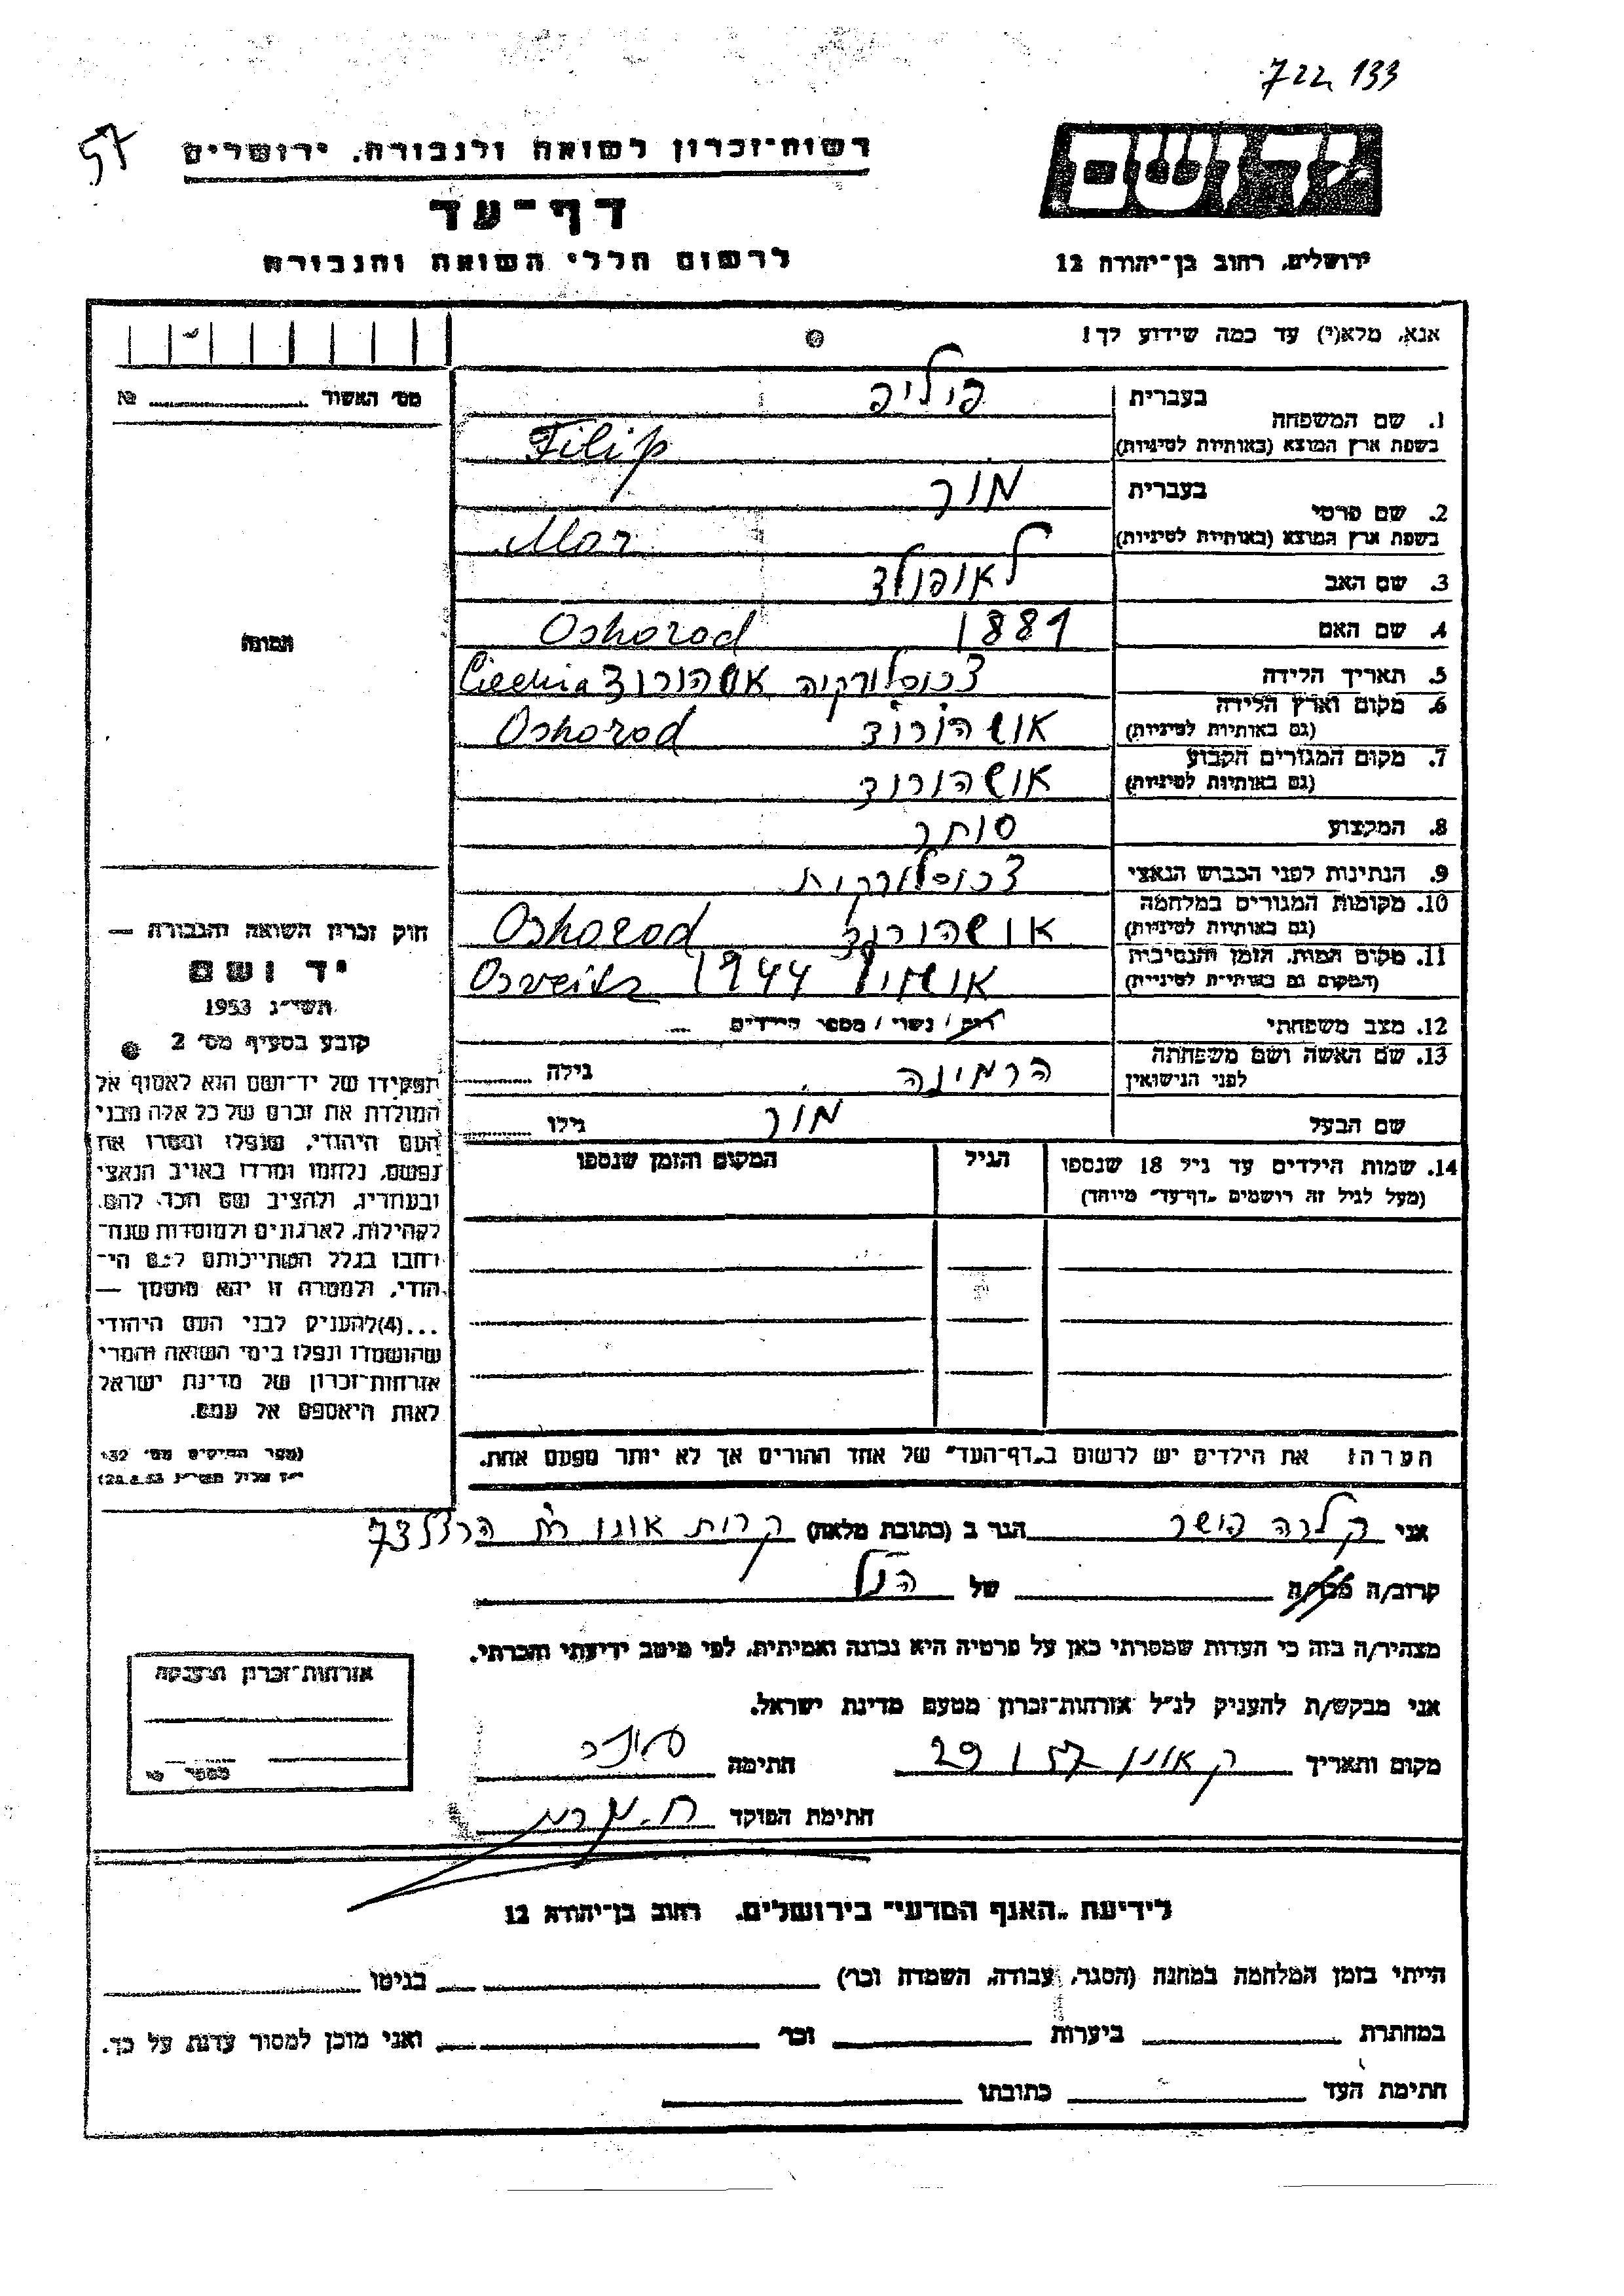 722 133
57
רשות־זכרון לשואה ולגבורה, ירושלים
דף־עד
לרשום חללי השואה והגבורה
ירושלים, רחוב בן־יהודה 12
אנא, מלא(י) עד כמה שידוע לך!
מס׳ האשור № 
1. שם המשפחה
בעברית פיליפ
בשפת ארץ המוצא (באותיות לטיניות) Filip
2. שם פרטי
בעברית מור
בשפת ארץ המוצא (באותיות לטיניות) Mor
3. שם האב לאופולד
4. שם האם 1881 Oshorod
5. תאריך הלידה צכוסלורקיה אשהורוד
6. מקום וארץ הלידה (גם באותיות לטיניות) אושהורוד Oshorod
7. מקום המגורים הקבוע (גם באותיות לטיניות) אושהורוד
8. המקצוע סוחר
9. הנתינות לפני הכבוש הנאצי צכוסלורקית
10. מקומות המגורים במלחמה (גם באותיות לטיניות) אושהורוד Oshorod
11. מקום המות, הזמן והנסיבות (המקום גם באותיות לטיניות) 1944
12. מצב משפחתי רוק / נשוי / מספר הילדים
13. שם האשה ושם משפחתה לפני הנישואין הרמינה גילה
שם הבעל מור גילו
14. שמות הילדים עד גיל 18 שנספו הגיל המקום והזמן שנספו
(מעל לגיל זה רושמים „דף־עד״ מיוחד)
הערה: את הילדים יש לרשום ב„דף־העד״ של אחד ההורים אך לא יותר מפעם אחת.
תמונה
חוק זכרון השואה והגבורה —
יד ושם
תשי״ג 1953
קובע בסעיף מס׳ 2
תפקידו של יד־ושם הוא לאסוף אל
המולדת את זכרם של כל אלה מבני
העם היהודי, שנפלו ומסרו את
נפשם, נלחמו ומרדו באויב הנאצי
ובעוזריו, ולהציב שם וזכר להם,
לקהילות, לארגונים ולמוסדות שנח־
רבו בגלל השתייכותם לעם הי־
הודי, ולמטרה זו יהא מוסמך —
...(4)להעניק לבני העם היהודי
שהושמדו ונפלו בימי השואה והמרי
אזרחות־זכרון של מדינת ישראל
לאות היאספם אל עמם.
(ספר החוקים מס׳ 132
י״ז אלול תשי״ג 28.8.53)
אני קלרה פישר הגר ב (כתובת מלאה) קרית אונו רח הרצל 73
קרוב/ה מכר/ה של הנ״ל
מצהיר/ה בזה כי העדות שמסרתי כאן על פרטיה היא נכונה ואמיתית, לפי מיטב ידיעתי והכרתי.
אני מבקש/ת להעניק לנ״ל אזרחות־זכרון מטעם מדינת ישראל.
מקום ותאריך ק אונו 29 1 57 חתימה
חתימת הפוקד
אזרחות־זכרון הוענקה
מספר
לידיעת „האגף המדעי״ בירושלים, רחוב בן־יהודה 12
הייתי בזמן המלחמה במחנה (הסגר, עבודה, השמדה וכו׳) בגיטו
במחתרת ביערות וכו׳ ואני מוכן למסור עדות על כך.
חתימת העד כתובתו